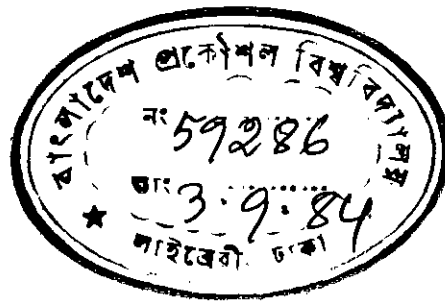 বাংলাদেশ প্রকৌশল বিশ্ববিদ্যালয়
নং 59286
তাং 3.9.84
লাইব্রেরী ঢাকা